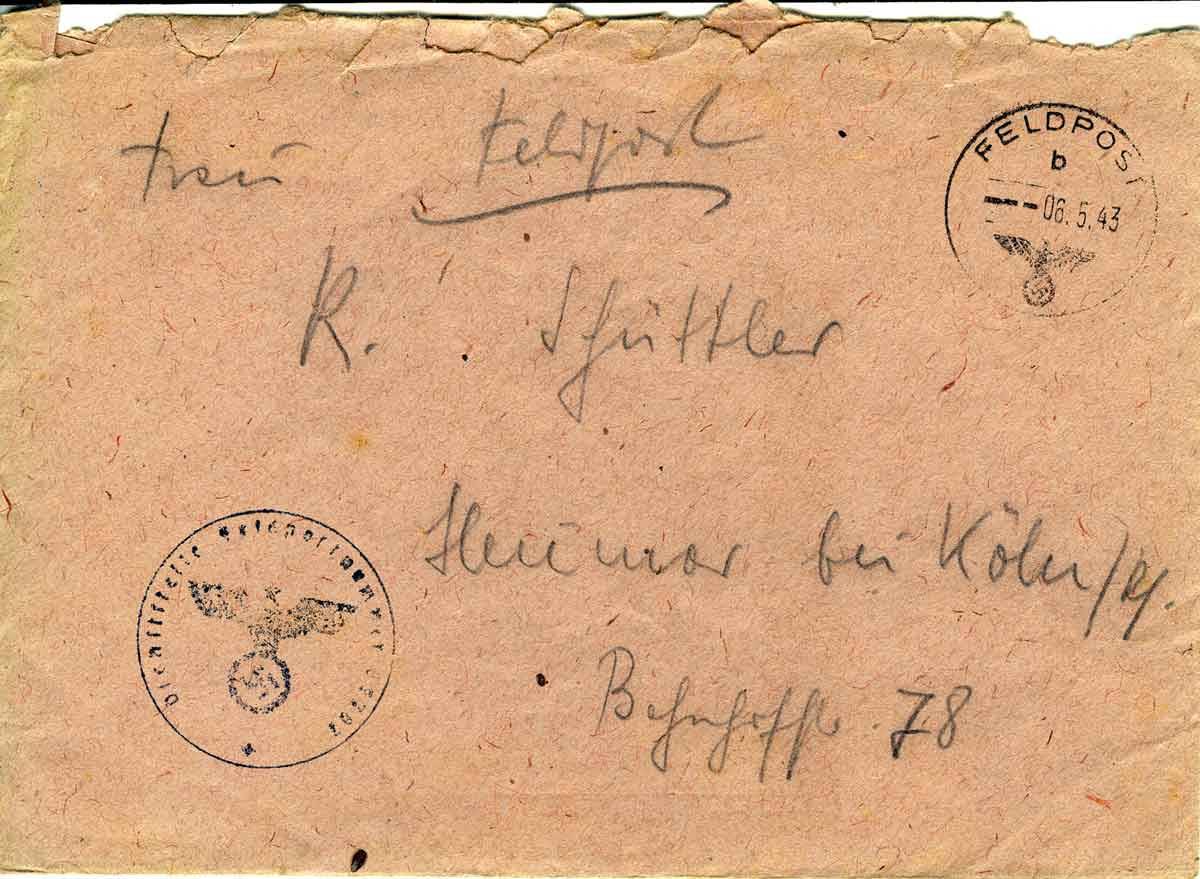 Feldpost
Frau
R. Schüttler
Heumar bei Köln/Rh.
Bahnhofstr. 78
FELDPOST
b
06.5.43
Dienststelle Feldpostnummer